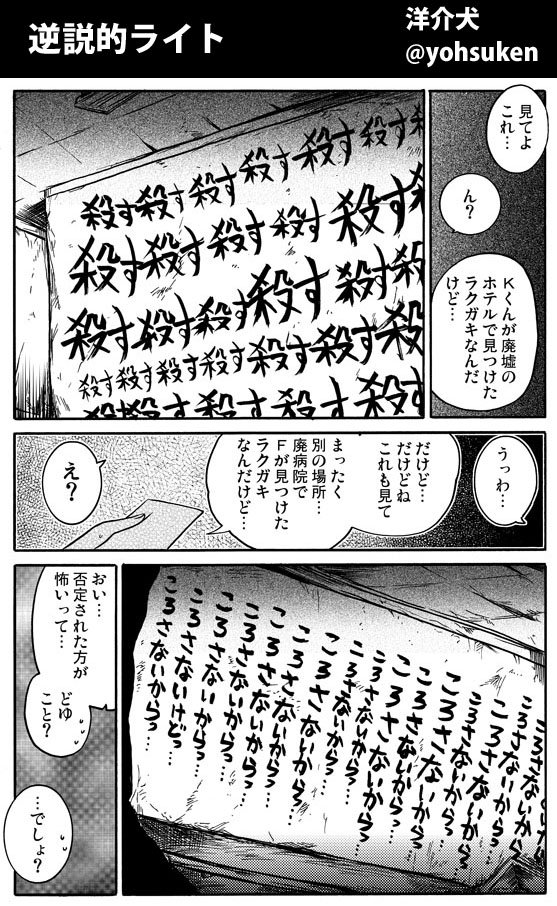 逆説的ライト
洋介犬
@yohsuken
見てよ
これ…
ん?
Kくんが廃墟の
ホテルで見つけた
ラクガキなんだ
けど…
殺す殺す殺す殺す殺す殺す殺す
殺す殺す殺す殺す殺す
殺す殺す殺す殺す殺す
殺す殺す殺す殺す殺す殺す
殺す殺す殺す殺す殺す
うっわ…
だけど…
だけどね
これも見て
まったく
別の場所…
廃病院で
Fが見つけた
ラクガキ
なんだけど…
え?
ころさないから…
ころさないから…
ころさないからっ…
ころさないからっ…
ころさないからっ…
ころさないからっ…
ころさないからっ…
ころさないからっ…
ころさないからっ…
ころさないからっ…
ころさないからっ…
ころさないけどっ…
ころさないからっ…
おい…
否定された方が
怖いって…
どゆ
こと?
…でしょ?